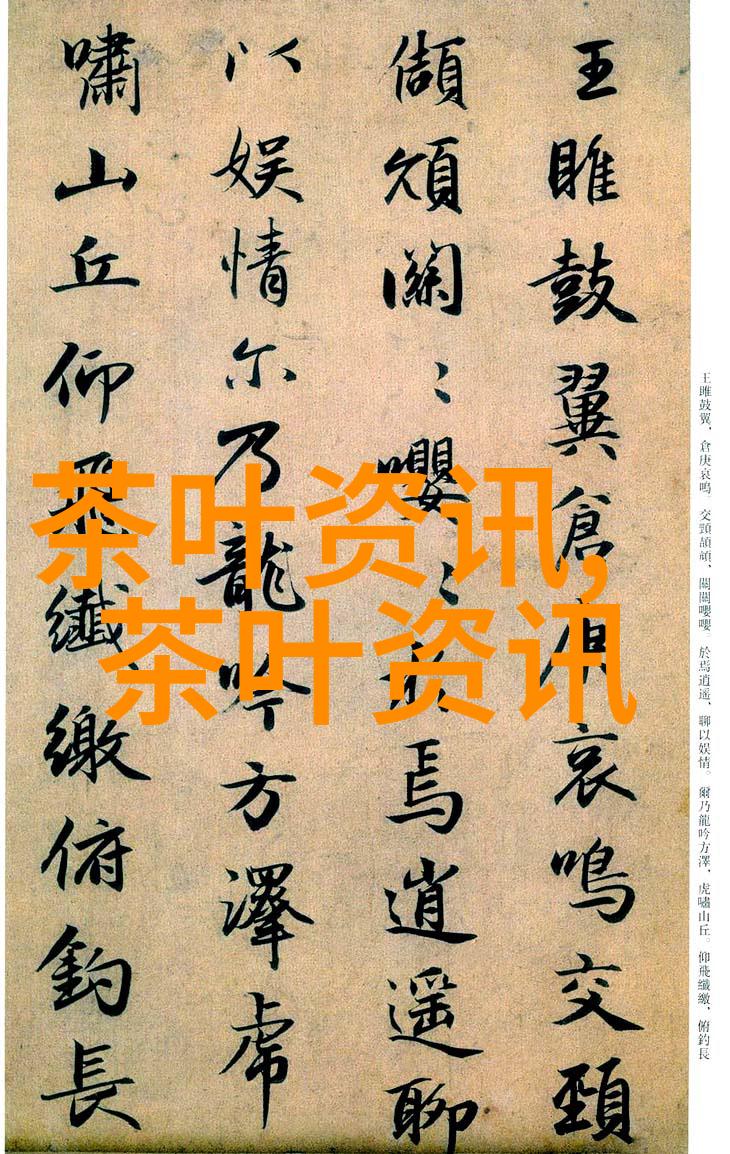 王雎鼓翼倉庚哀鳴交頸
頡頏關〻嚶〻於焉逍遥聊
以娱情尔乃龍吟方澤虎
嘯山丘仰飛纖繳俯釣長
王雎鼓翼、倉庚哀鳴。交頸頡頏、關關嚶嚶。於焉逍遥、聊以娱情。爾乃龍吟方澤、虎嘯山丘。仰飛纖繳、俯釣長
茶叶资讯,
茶叶资讯